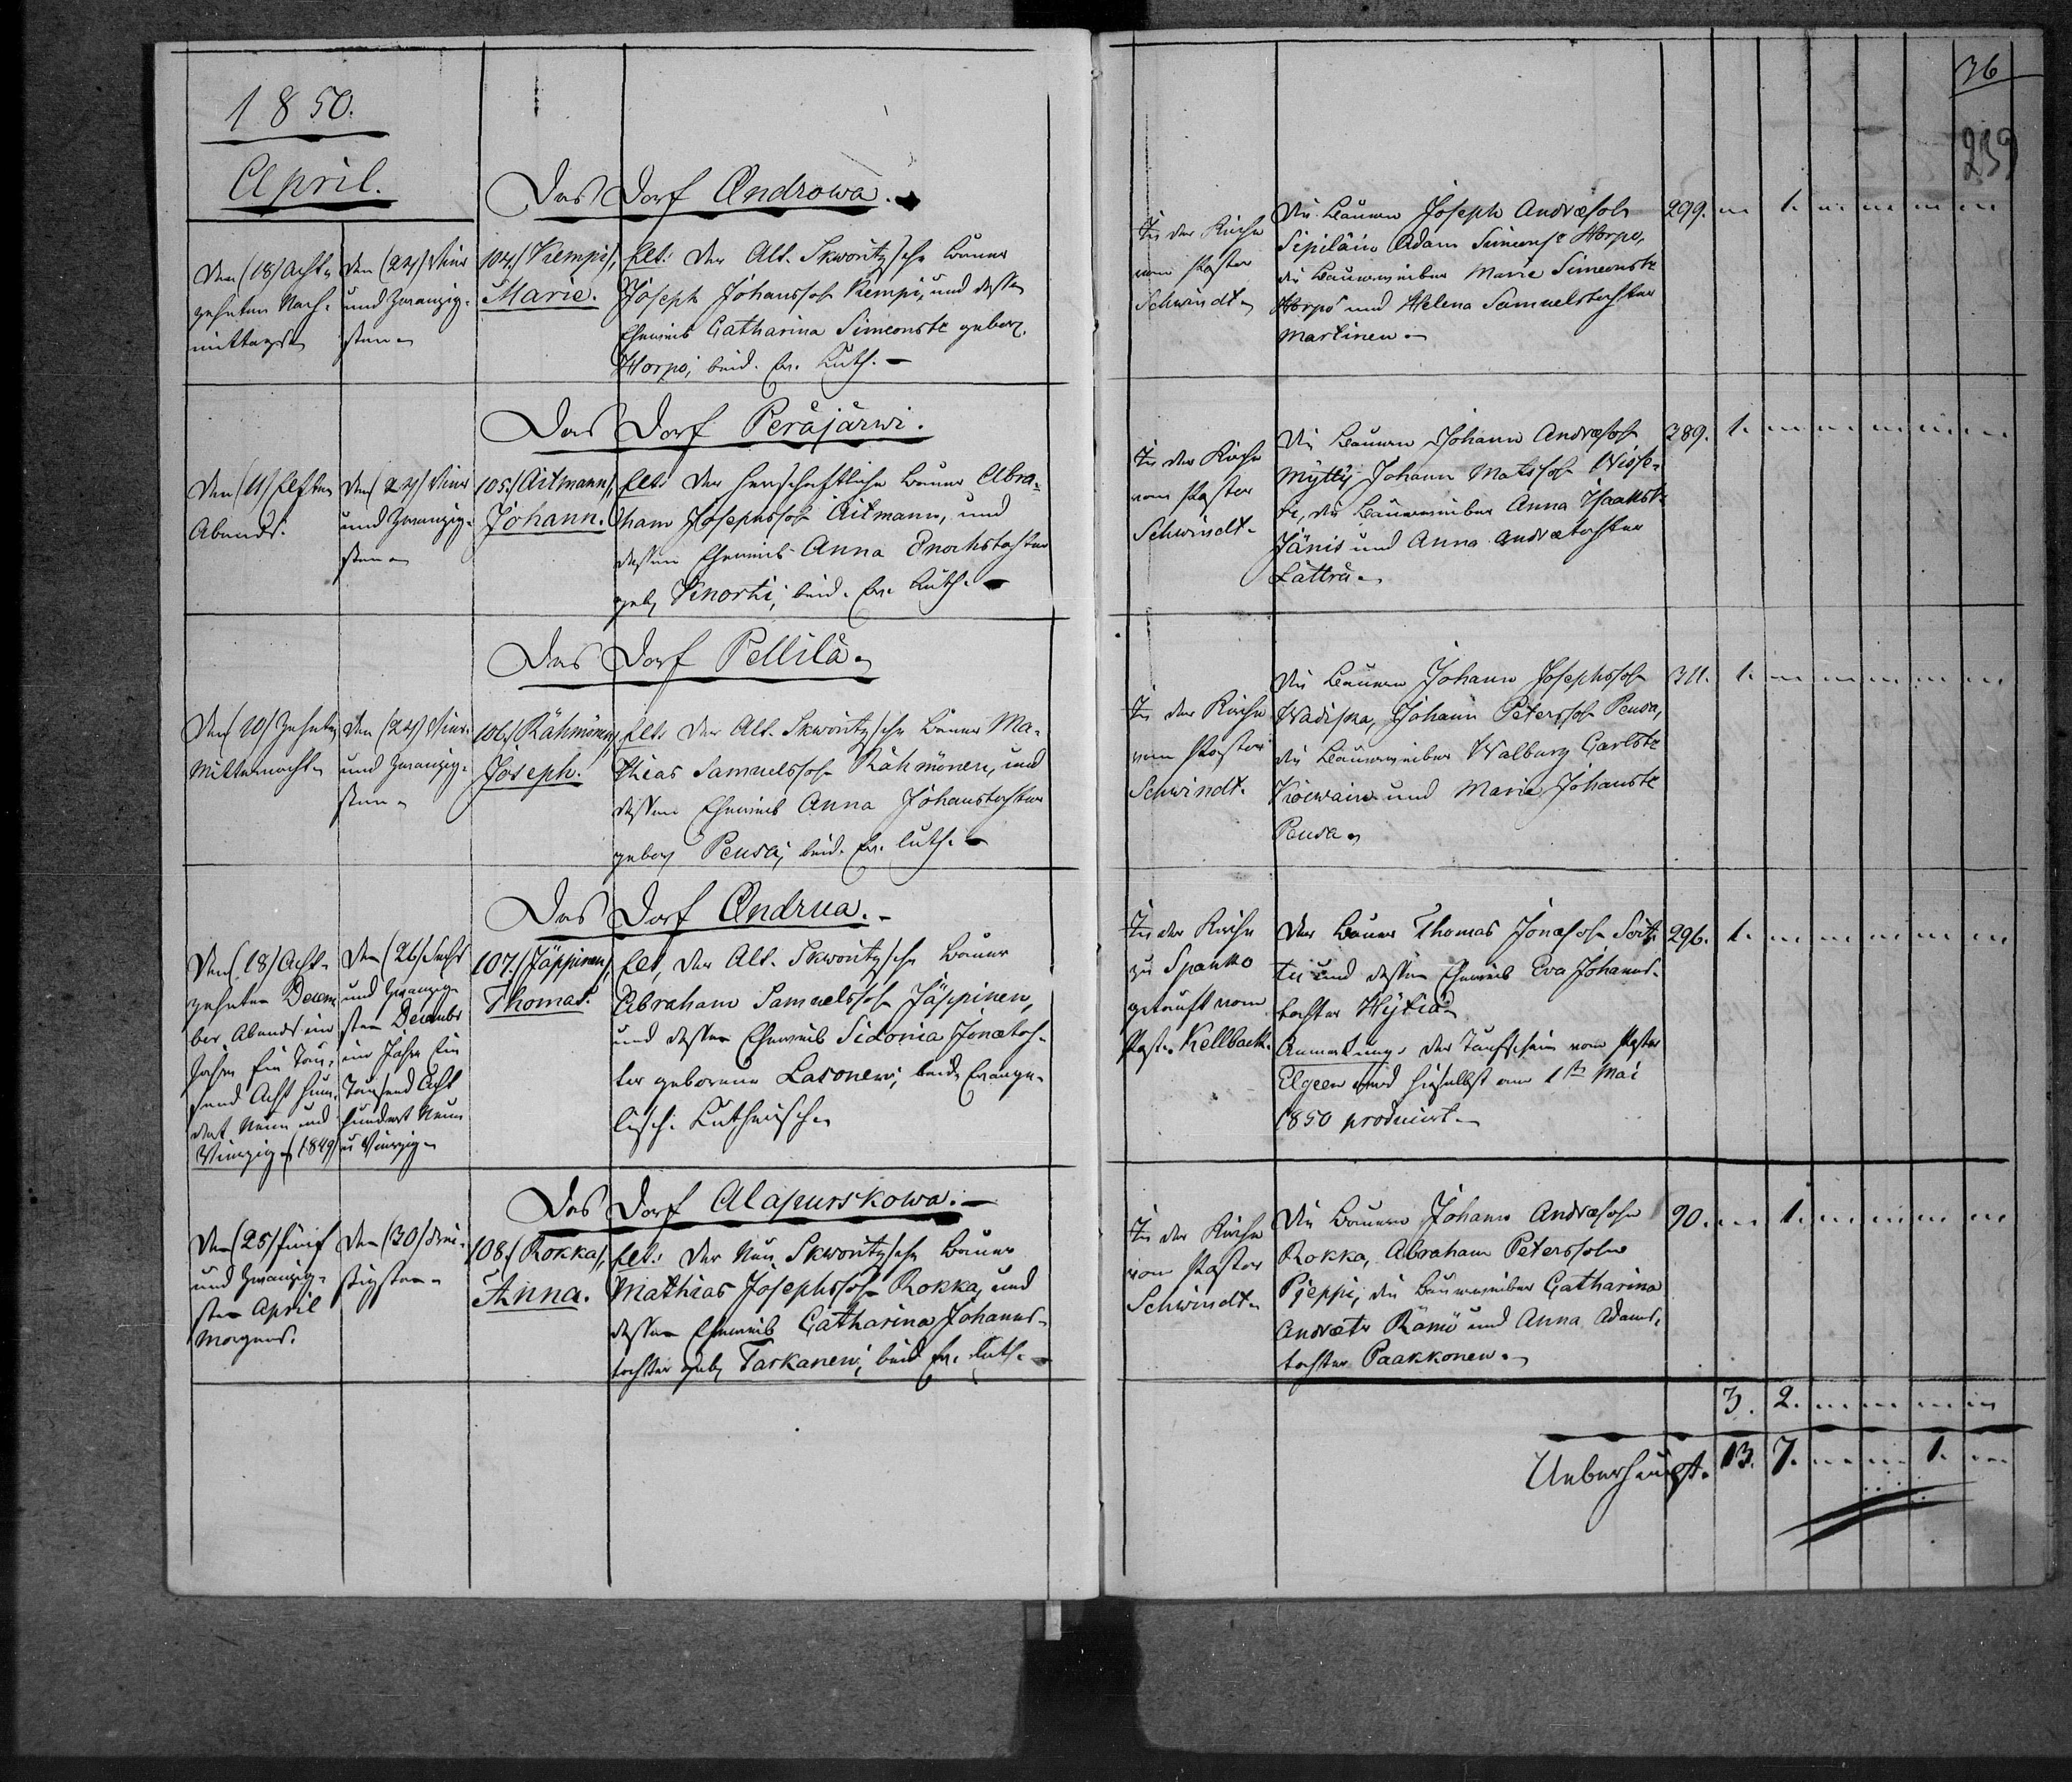 1850.
April.
Das Dorf Androwa.
Den (18) Acht-
zehnten Nach-
mittags
den (24) Vier
und Zwanzig-
sten
104. (Kempi),
Marie.
Elt: Der Alt. Skworitzsche Bauer
Joseph Johanssohn Kempi, und dessen
Eheweib Catharina Simeonstr gebor.
Horpo; beid. Ev. Luth.
Das Dorf Peräjärwi.
Den (11) Elften
Abends.
den (24) Vier
und Zwanzig-
sten
105. (Aitmann),
Johann.
Elt: Der herrschaftliche Bauer Abra-
ham Josephssohn Aitmann, und
dessen Eheweib Anna Enochstochter
geb. Knorti; beid. Ev. Luth.
Das Dorf Pellilä.
Den (10) Zehnten
Mitternacht
den (24) Vier-
und Zwanzig-
sten
106. (Rähmönen)
Joseph.
Elt: Der Alt. Skworitzsche Bauer Ma-
thias Samuelssohn Rähmönen, und
dessen Eheweib Anna Johanstochter
gebor. Pensa; beid. Ev. luth.
Das Dorf Andrua.
Den (18) Acht-
zehnten Decem-
ber Abends im
Jahre Ein Tau-
send Acht Hun-
dert Neun und
Vierzig (1849)
den (26) Sechs
und Zwanzig-
sten December
im Jahre Ein
Tausend Acht
hundert Neun
u Vierzig
107. (Jäppinen)
Thomas.
Elt, Der Alt. Skworitzsche Bauer
Abraham Samuelssohn Jäppinen,
und dessen Eheweib Sidonia Jonatoch-
ter geborene Lasonen; beide Evange-
lisch. Lutherisch.
Das Dorf Alapurskowa.
Den (25) Fünf
und Zwanzig-
sten April
Morgens.
Den (30) Drei-
ßigsten
108. (Rokka),
Anna.
Elt: Der Neu Skworitzsche Bauer
Mathias Josephssohn Rokka, und
dessen Eheweib Catharina Johanns-
tochter geb. Tarkanen; beid Ev. Luth.
36
239
In der Kirche
vom Pastor
Schwindt.
Die Bauern Joseph Andræsohn
Sipiläin Adam Simeonss. Horpo,
die Bauerweiber Marie Simeonstr
Horpo und Helena Samuelstochter
Martinen
299. 1.
In der Kirche
vom Pastor
Schwindt.
Die Bauern Johann Andræsohn
Mylly Johann Matssohn Wisse-
ri, die Bauerweiber Anna Isaakstr
Jänis und Anna Andrætochter
Lätträ
389. 1.
In der Kirche
vom Pastor
Schwindt.
Die Bauern Johann Josephssohn
Wadiska, Johann Peterssohn Pensa,
die Bauerweiber Walburg Carlstr
und Maria Johanstr
Pensa
311. 1.
In der Kirche
zu Spanko
getauft vom
Past. Kellback.
Der Bauer Thomas Jonæsohn Soit-
tu und dessen Eheweib Eva Johanns-
tochter Hytiä
Anmerkung: Der Taufschein vom Pastor
Elgeen wird hieselbst am 1ten Mai
1850 produciert.
296. 1.
In der Kirche
vom Pastor
Schwindt.
Die Bauern Johann Andræsohn
Rokka, Abraham Peterssohn
Pjeppi; die Bauerweiber Catharina
Andrætr Rämö und Anna Adams-
tochter Paakkonen.
90. 1.
3. 2.
Ueberhaupt. 13. 7. 1.